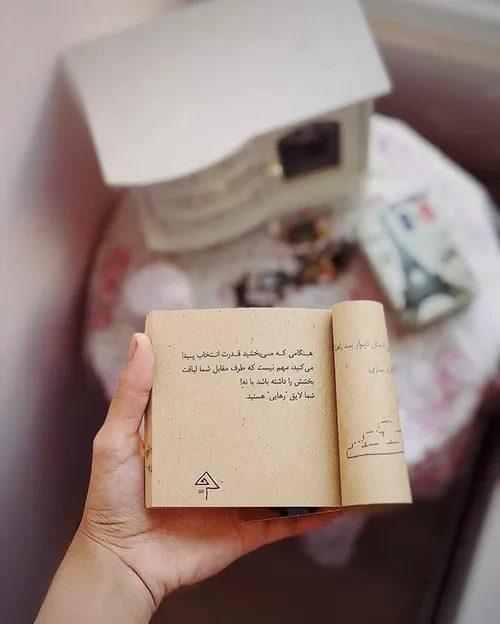 هنگامی که می‌بخشید قدرت انتخاب پیدا
می‌کنید، مهم نیست که طرف مقابل شما لیاقت
بخشش را داشته باشد یا نه!
شما لایق "رهایی" هستید.
۵۵
دیوار
سازی.